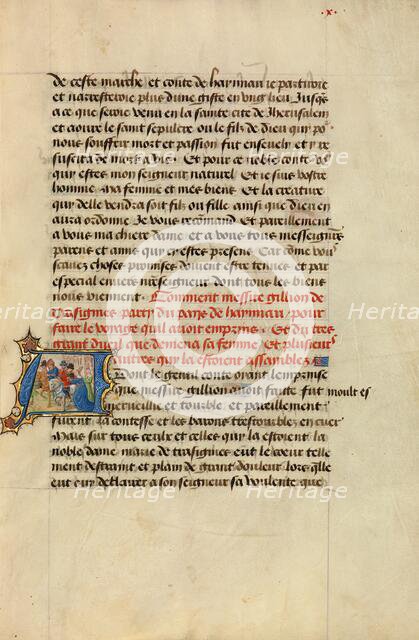 .x.
de ceste marche et conte de haynnau je partiroie
et narresteroie plus dune giste en ung lieu jusques
a ce que seroie venu en la sainte cite de Jherusalem
et aoure le saint sepulcre ou le filz de dieu qui po
nous souffry mort et passion fut ensevely et re
suscita de mort a vie. Et pour ce noble conte vo
qui estes mon seigneur naturel Et je suis vostre
homme ma femme et mes biens Et la creature
qui delle vendra soit filz ou fille ainsi que dieu en
aura ordonne Je vous recomand Et pareillement
a vous ma chiere dame et a vous tous messeigne
parens et amis qui cy estes presens Car come vo
scavez choses promises doivent estre tenues et par
especial envers nreseigneur dont tous les biens
nous viennent Comment messire gillion de
trasignies party du pays de haynnau pour
faire le voyage quil avoit empryns Et du tres
grant dueil que demena sa femme et plusieurs
autres qui la estoient assamblez
Dont le gentil conte oyant lemprinse
que messire gillion avoit faitte fut moult es
merveillie et trouble et pareillement
furent la contesse et les barons trestroublez en cuer
Mais sur tous ceulx et celles qui la estoient la
noble dame marie de trasignies eut le coeur telle
ment destraint et plain de grant douleur lors quelle
eut oy declairer a son seigneur sa voulente que
Heritage
Heritage
Heritage
Heritage
Heritage
Heritage